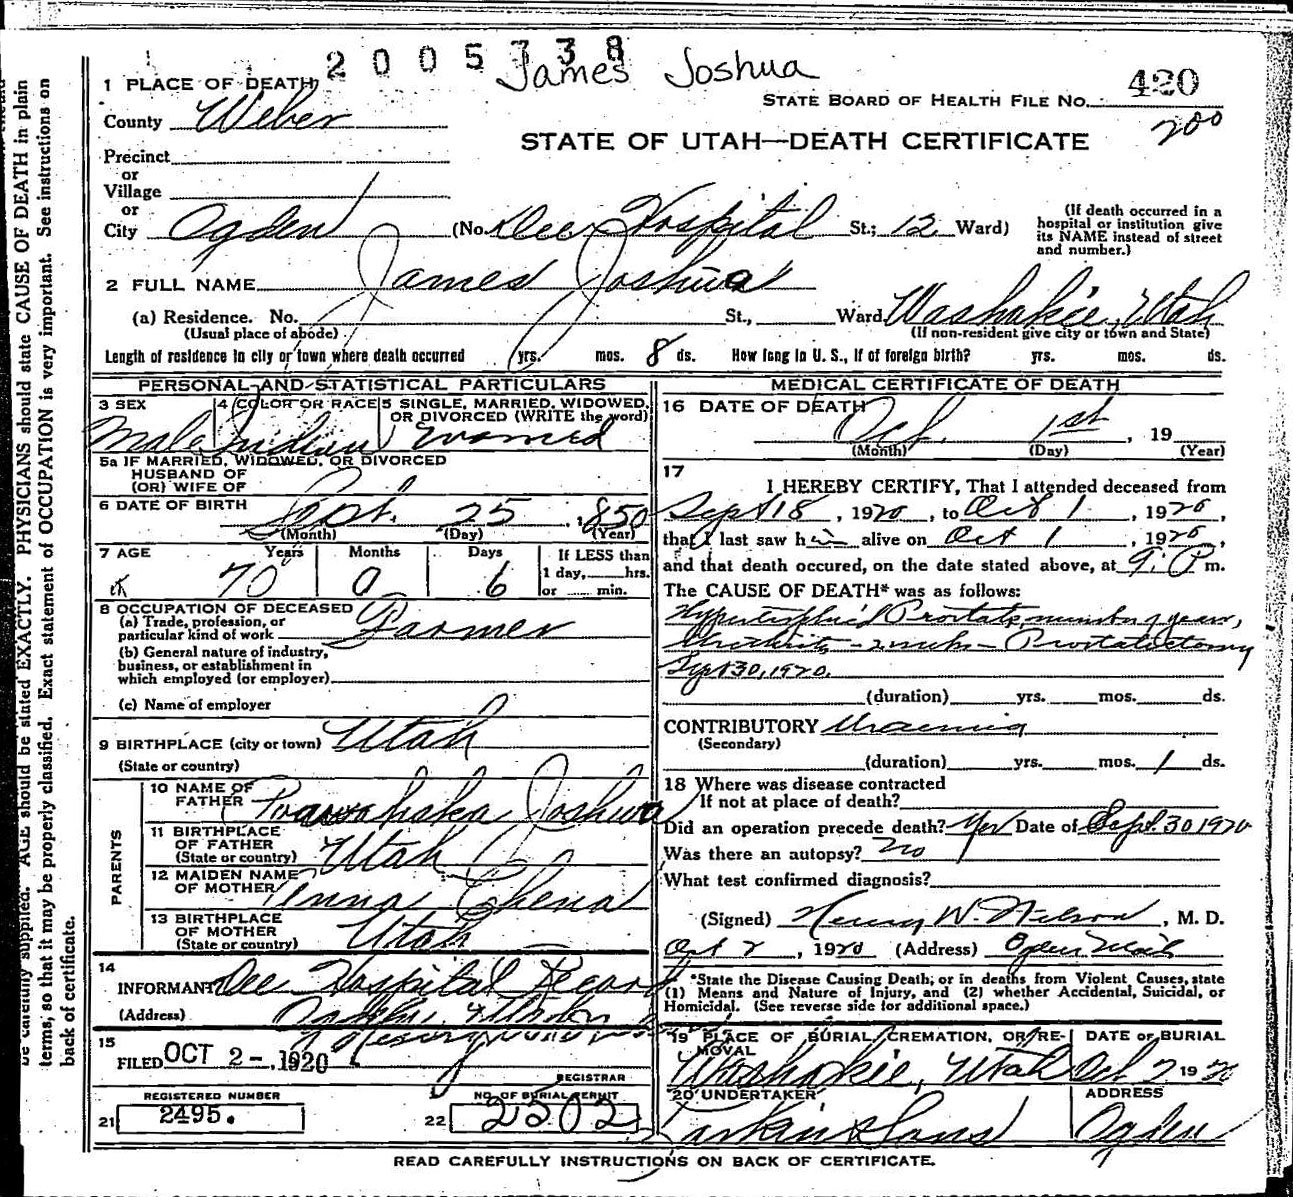 2005738
James Joshua
1 PLACE OF DEATH
STATE BOARD OF HEALTH FILE NO. 420
200
County Weber
STATE OF UTAH—DEATH CERTIFICATE
Precinct
or
Village
or
City Ogden (No. Dee Hospital St.; 12 Ward) (If death occurred in a hospital or institution give its NAME instead of street and number.)
2 FULL NAME James Joshua
(a) Residence. No. St., Ward Washakie, Utah
(Usual place of abode) (If non-resident give city or town and State)
Length of residence in city or town where death occurred yrs. mos. 8 ds. How long in U. S., if of foreign birth? yrs. mos. ds.
PERSONAL AND STATISTICAL PARTICULARS
3 SEX 4 COLOR OR RACE 5 SINGLE, MARRIED, WIDOWED, OR DIVORCED (WRITE the word)
Male Indian
5a IF MARRIED, WIDOWED, OR DIVORCED
HUSBAND OF
(OR) WIFE OF
6 DATE OF BIRTH Sept. 25, 1850
(Month) (Day) (Year)
7 AGE Years Months Days If LESS than
70 0 6 1 day, hrs.
or min.
8 OCCUPATION OF DECEASED
(a) Trade, profession, or
particular kind of work Farmer
(b) General nature of industry,
business, or establishment in
which employed (or employer)
(c) Name of employer
9 BIRTHPLACE (city or town) Utah
(State or country)
PARENTS
10 NAME OF
FATHER Joshua
11 BIRTHPLACE
OF FATHER
(State or country) Utah
12 MAIDEN NAME
OF MOTHER Anna Chena
13 BIRTHPLACE
OF MOTHER
(State or country) Utah
14
INFORMANT Dee Hospital Record
(Address)
15
FILED OCT 2-, 1920
REGISTRAR
REGISTERED NUMBER
21 2495.
NO. OF BURIAL PERMIT
22 2502
MEDICAL CERTIFICATE OF DEATH
16 DATE OF DEATH
Oct. 1st, 19
(Month) (Day) (Year)
17
I HEREBY CERTIFY, That I attended deceased from
Sept 18, 1920, to Oct 1, 1920,
that I last saw him alive on Oct 1, 1920,
and that death occured, on the date stated above, at 9: P m.
The CAUSE OF DEATH* was as follows:
Hypertrophied Prostate number of years,
Urethritis - 2 weeks - Prostatectomy
Sept 30, 1920.
(duration) yrs. mos. ds.
CONTRIBUTORY Uraemia
(Secondary)
(duration) yrs. mos. 1 ds.
18 Where was disease contracted
If not at place of death?
Did an operation precede death? Yes Date of Sept. 30 1920
Was there an autopsy? No
What test confirmed diagnosis?
(Signed) Henry W. Nelson, M. D.
Oct 2, 1920 (Address) Ogden Utah
*State the Disease Causing Death, or in deaths from Violent Causes, state
(1) Means and Nature of Injury, and (2) whether Accidental, Suicidal, or
Homicidal. (See reverse side for additional space.)
19 PLACE OF BURIAL, CREMATION, OR RE- DATE OF BURIAL
MOVAL
Washakie, Utah Oct 2 1920
20 UNDERTAKER ADDRESS
Larkin & Sons Ogden
READ CAREFULLY INSTRUCTIONS ON BACK OF CERTIFICATE.
be carefully supplied. AGE should be stated EXACTLY. PHYSICIANS should state CAUSE OF DEATH in plain
terms, so that it may be properly classified. Exact statement of OCCUPATION is very important. See instructions on
back of certificate.